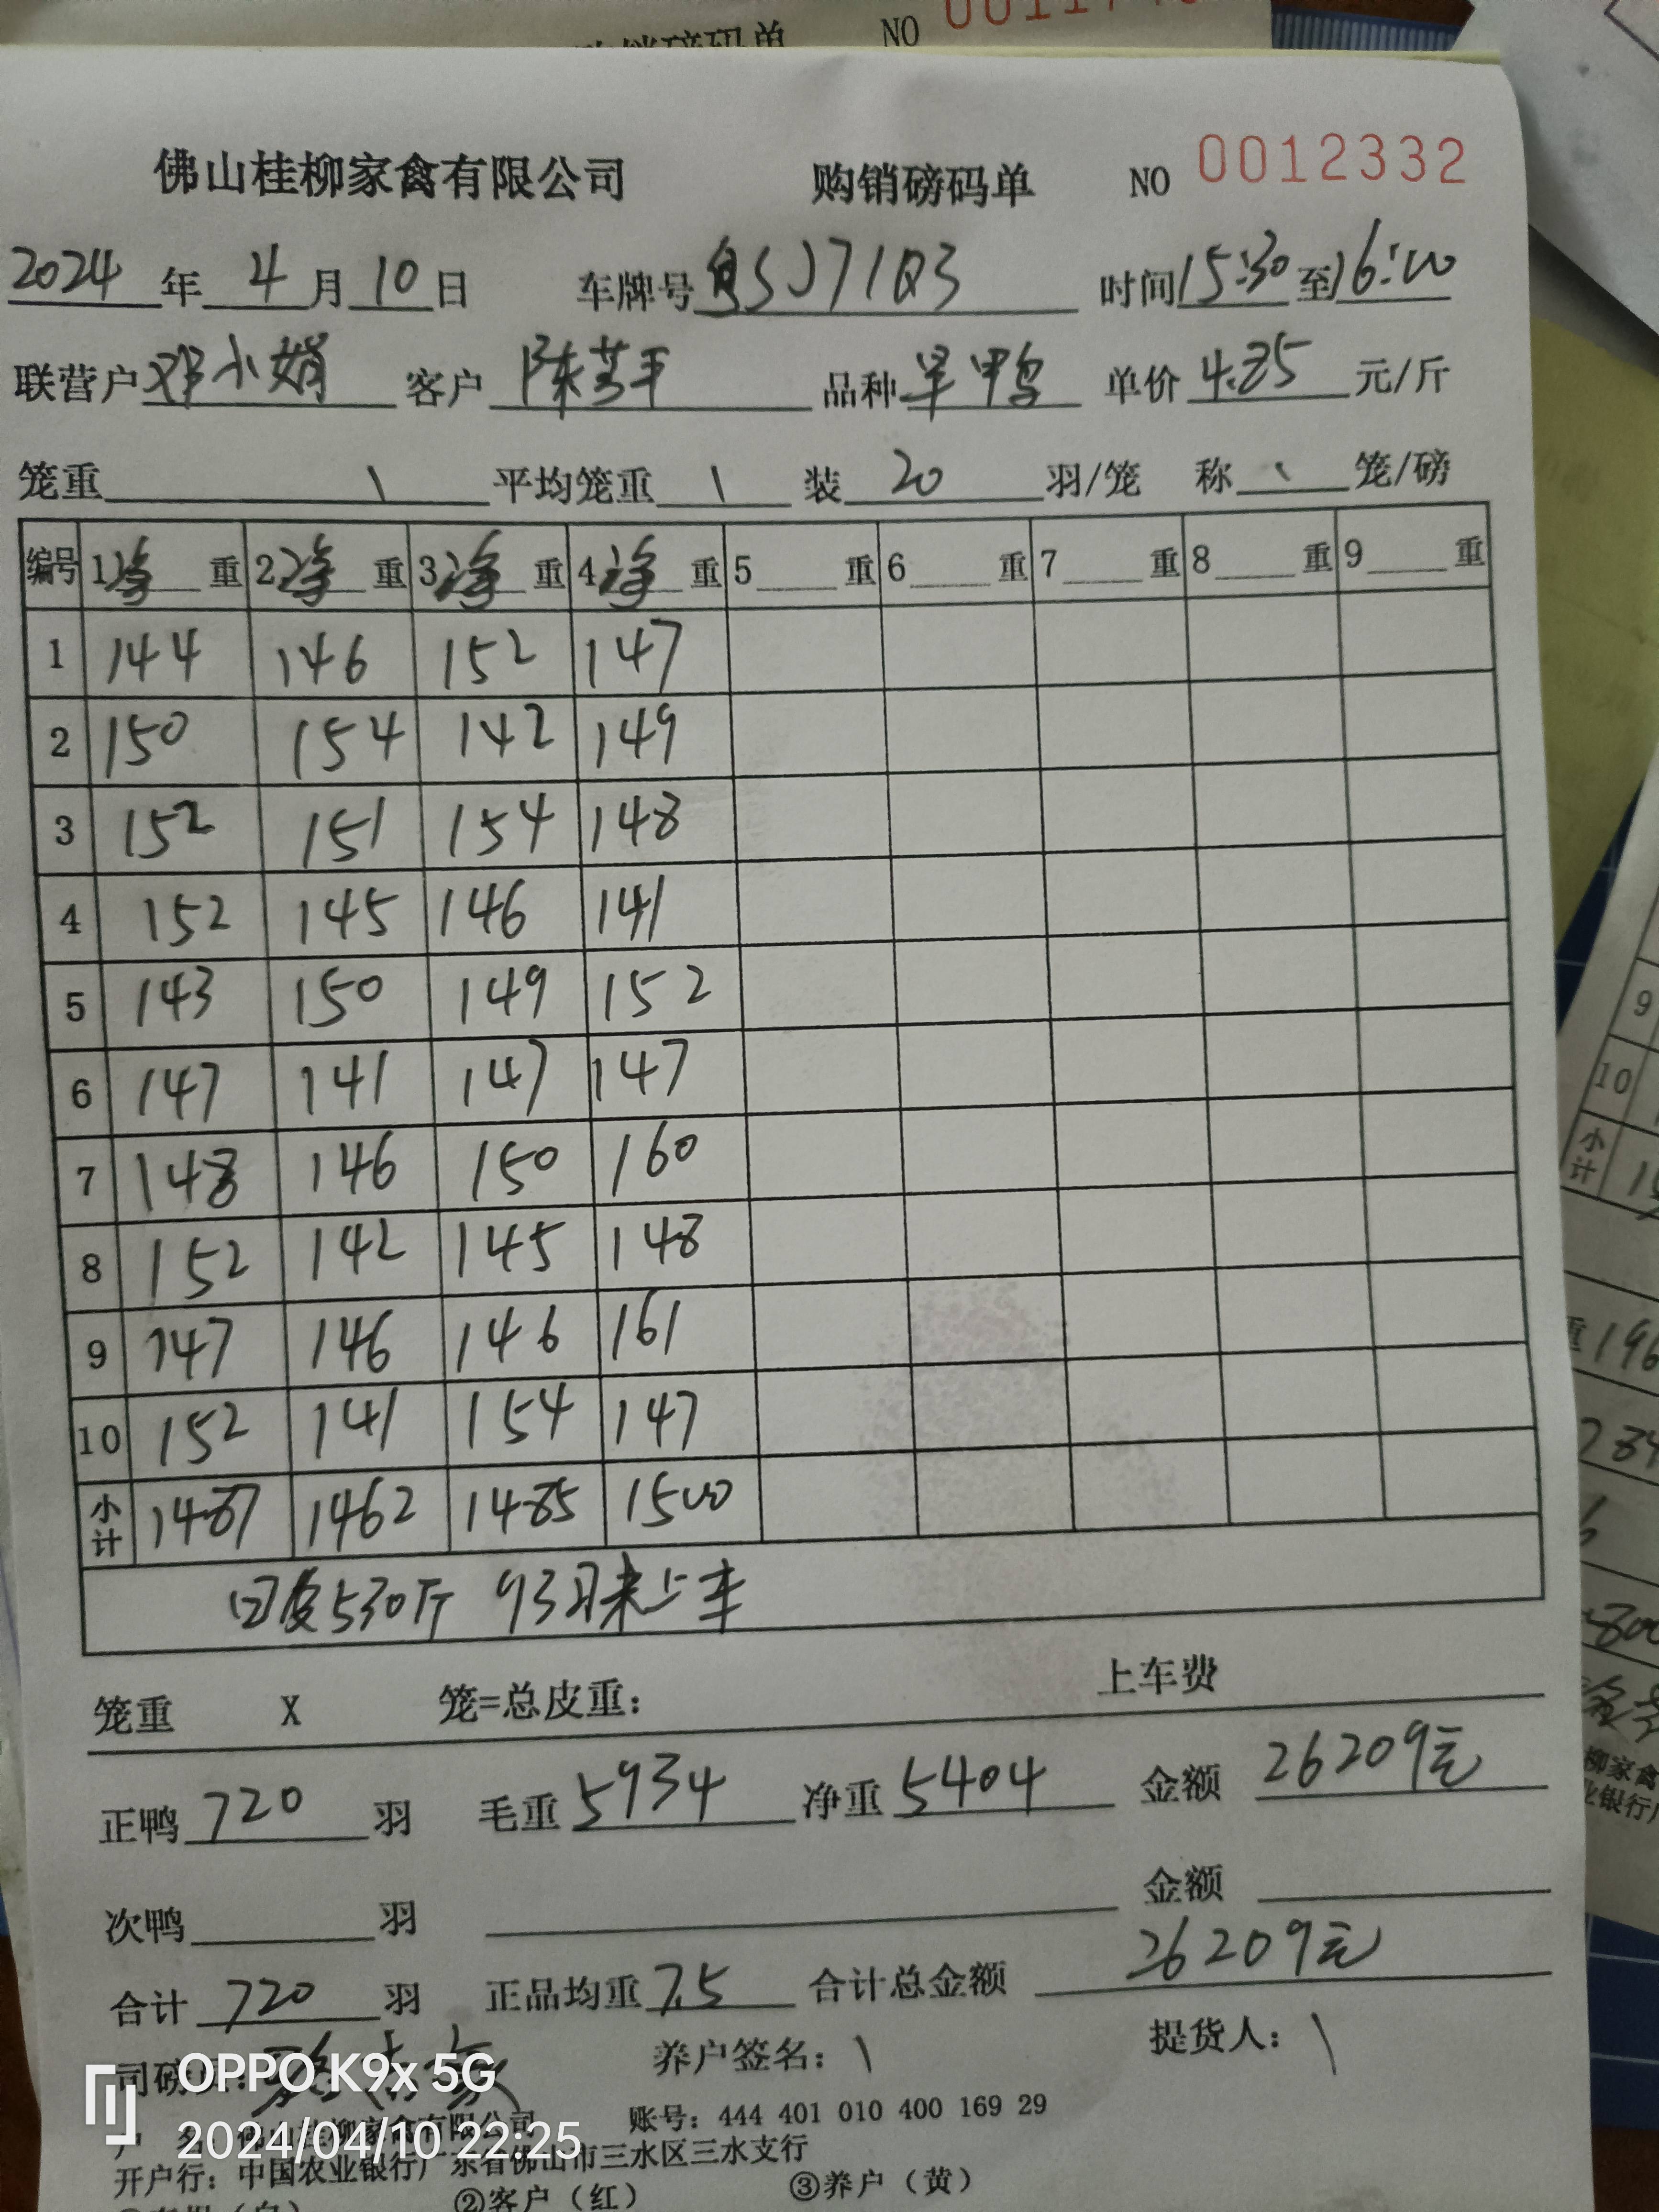 购销磅码单 NO
佛山桂柳家禽有限公司 购销磅码单 NO 0012332
2024年4月10日 车牌号 时间15:30至16:00
联营户邓小娟 客户陈芳平 品种旱鸭 单价4.85元/斤
笼重\ 平均笼重\ 装20羽/笼 称\笼/磅
编号 1净重 2净重 3净重 4净重 5重 6重 7重 8重 9重
1 144 146 152 147
2 150 154 142 149
3 152 151 154 148
4 152 145 146 141
5 143 150 149 152
6 147 141 147 147
7 148 146 150 160
8 152 142 145 148
9 147 146 146 161
10 152 141 154 147
小计 1487 1462 1485 1500
回皮530斤 上车
笼重 X 笼=总皮重: 上车费
正鸭720羽 毛重5934 净重5404 金额26209元
次鸭 羽 金额
合计720羽 正品均重7.5 合计总金额26209元
司磅 养户签名:\ 提货人:\
OPPO K9x 5G
佛山桂柳家禽有限公司 账号: 444 401 010 400 169 29
2024/04/10 22:25
开户行: 中国农业银行广东省佛山市三水区三水支行
②客户(红) ③养户(黄)